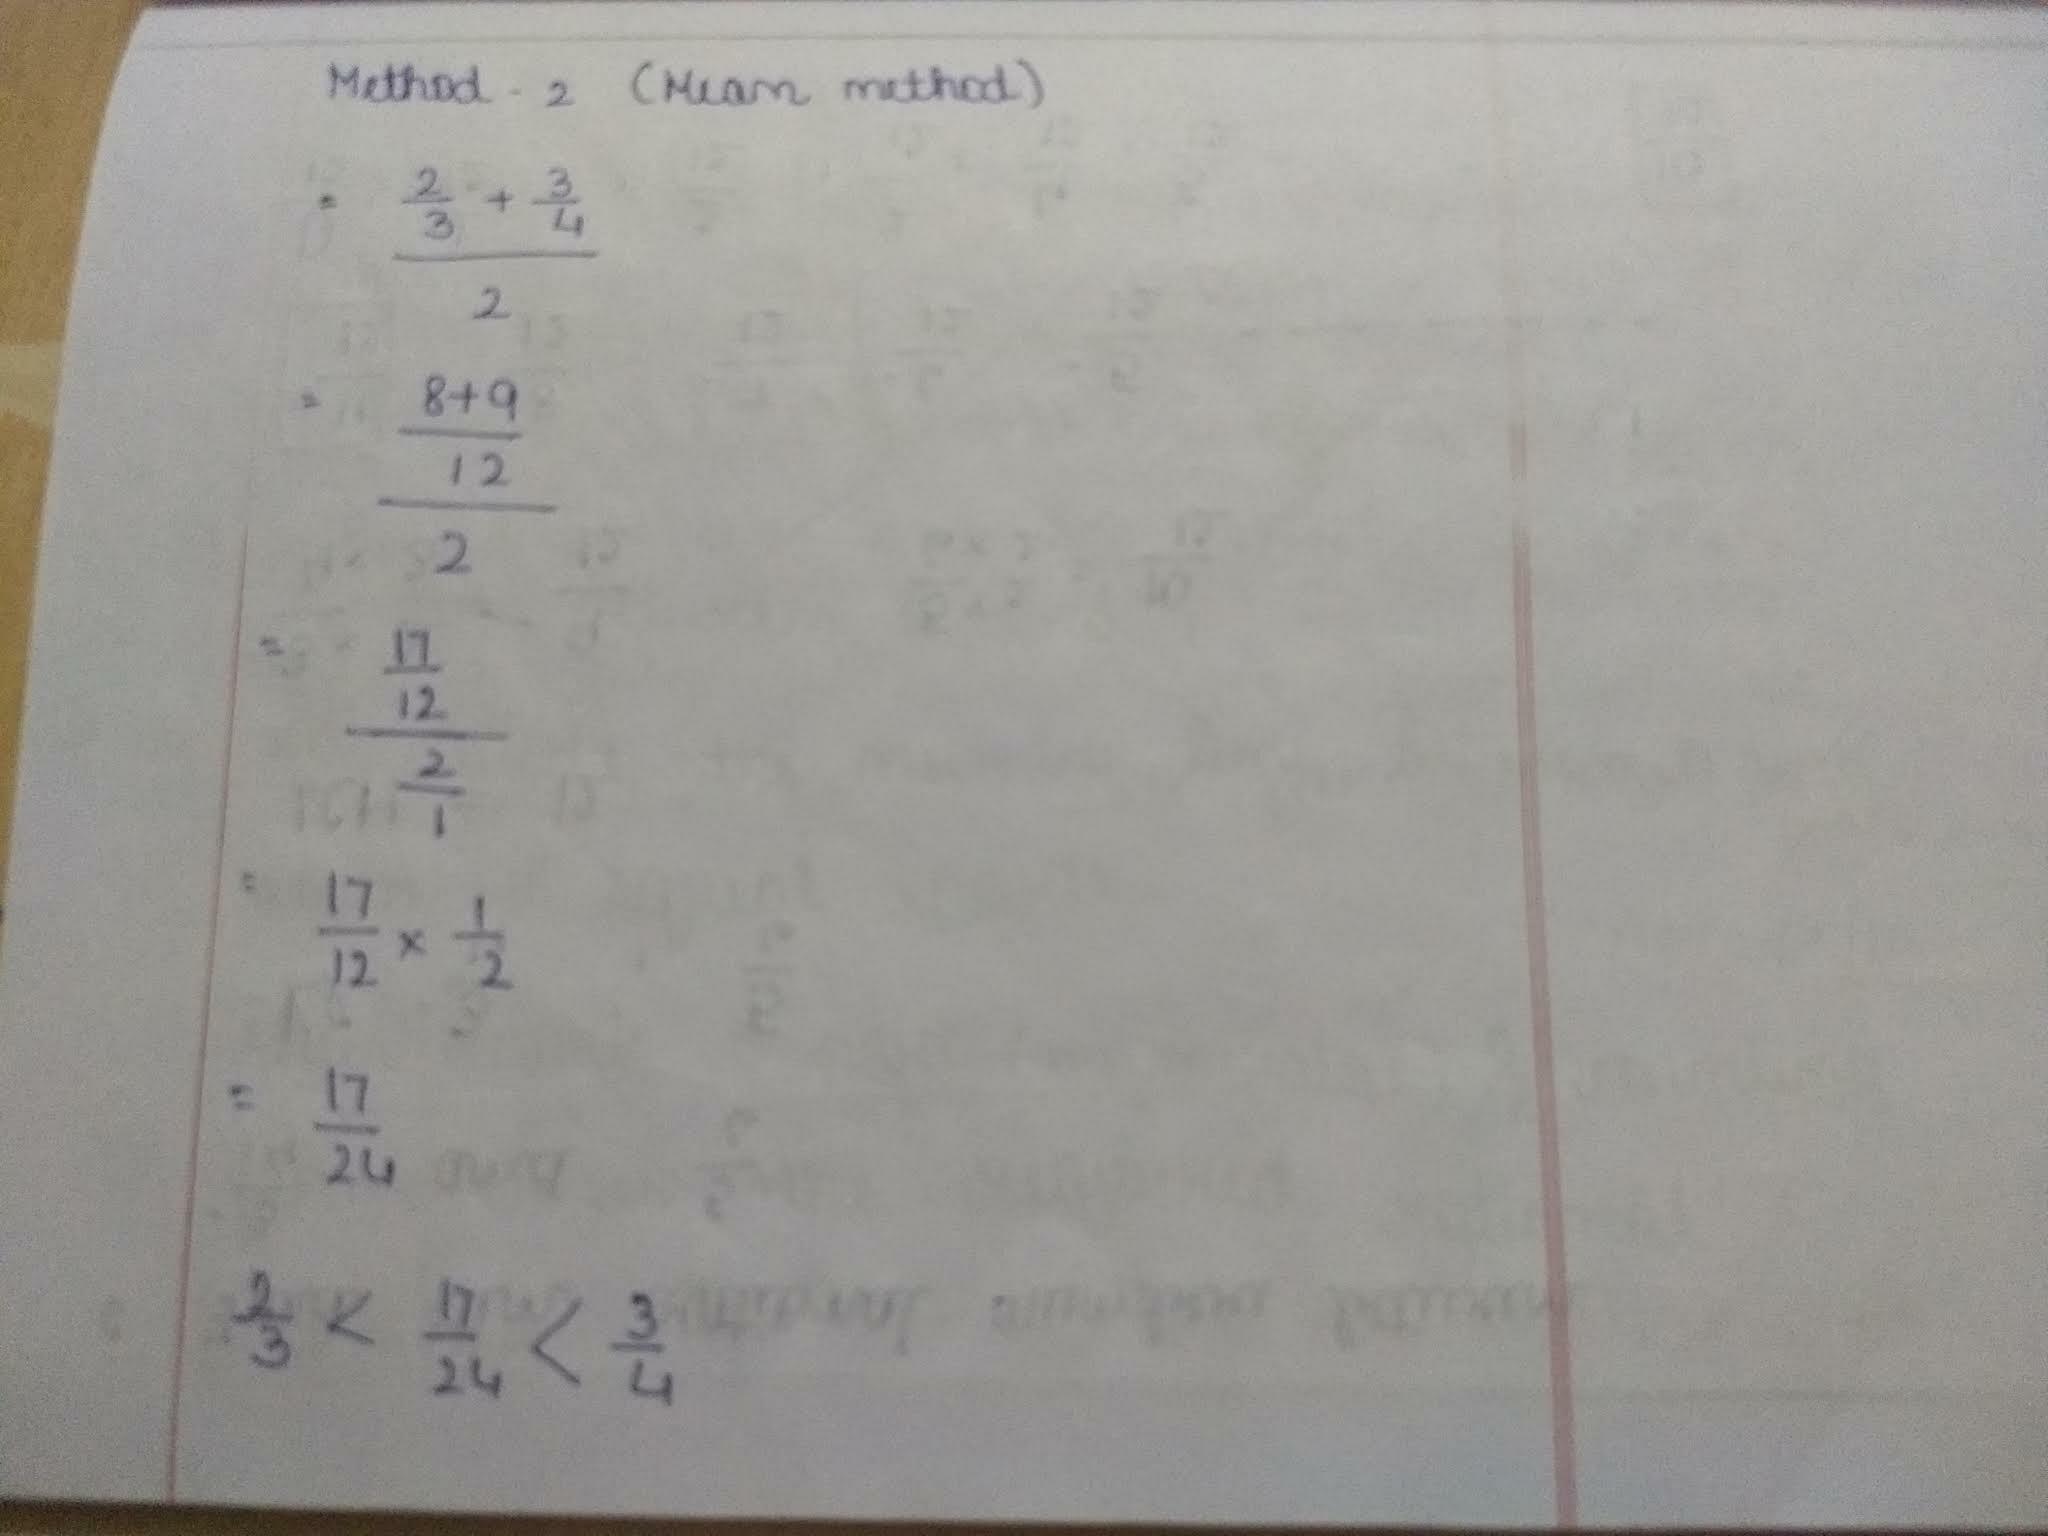 Method - 2 (Mean method)
= 2/3 + 3/4
2
= 8+9
12
2
= 17
12
2
1
= 17/12 × 1/2
= 17
24
2/3 < 17/24 < 3/4